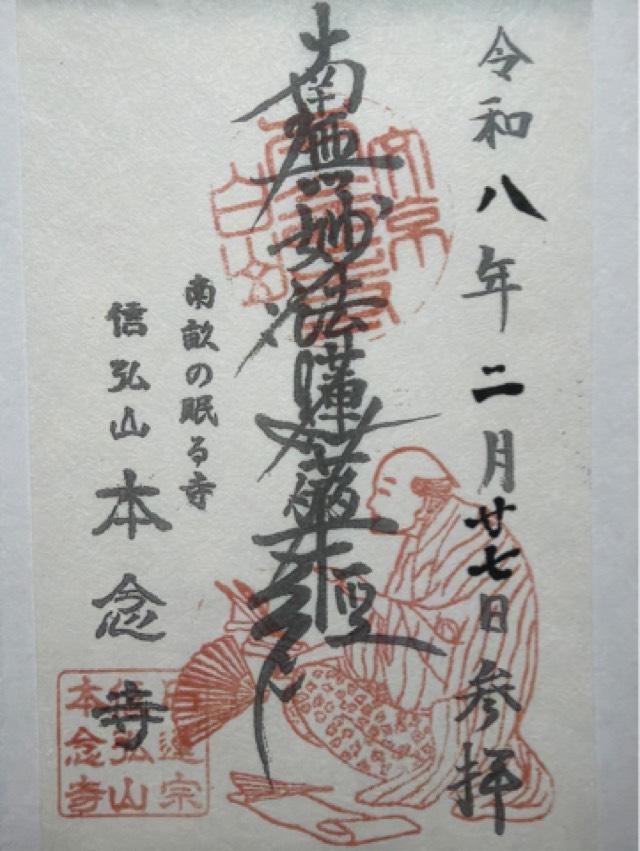 令和八年二月廿七日参拝
南無妙法蓮華経
南畝の眠る寺
信弘山本念寺
文京
白山
日蓮宗
信弘山
本念寺